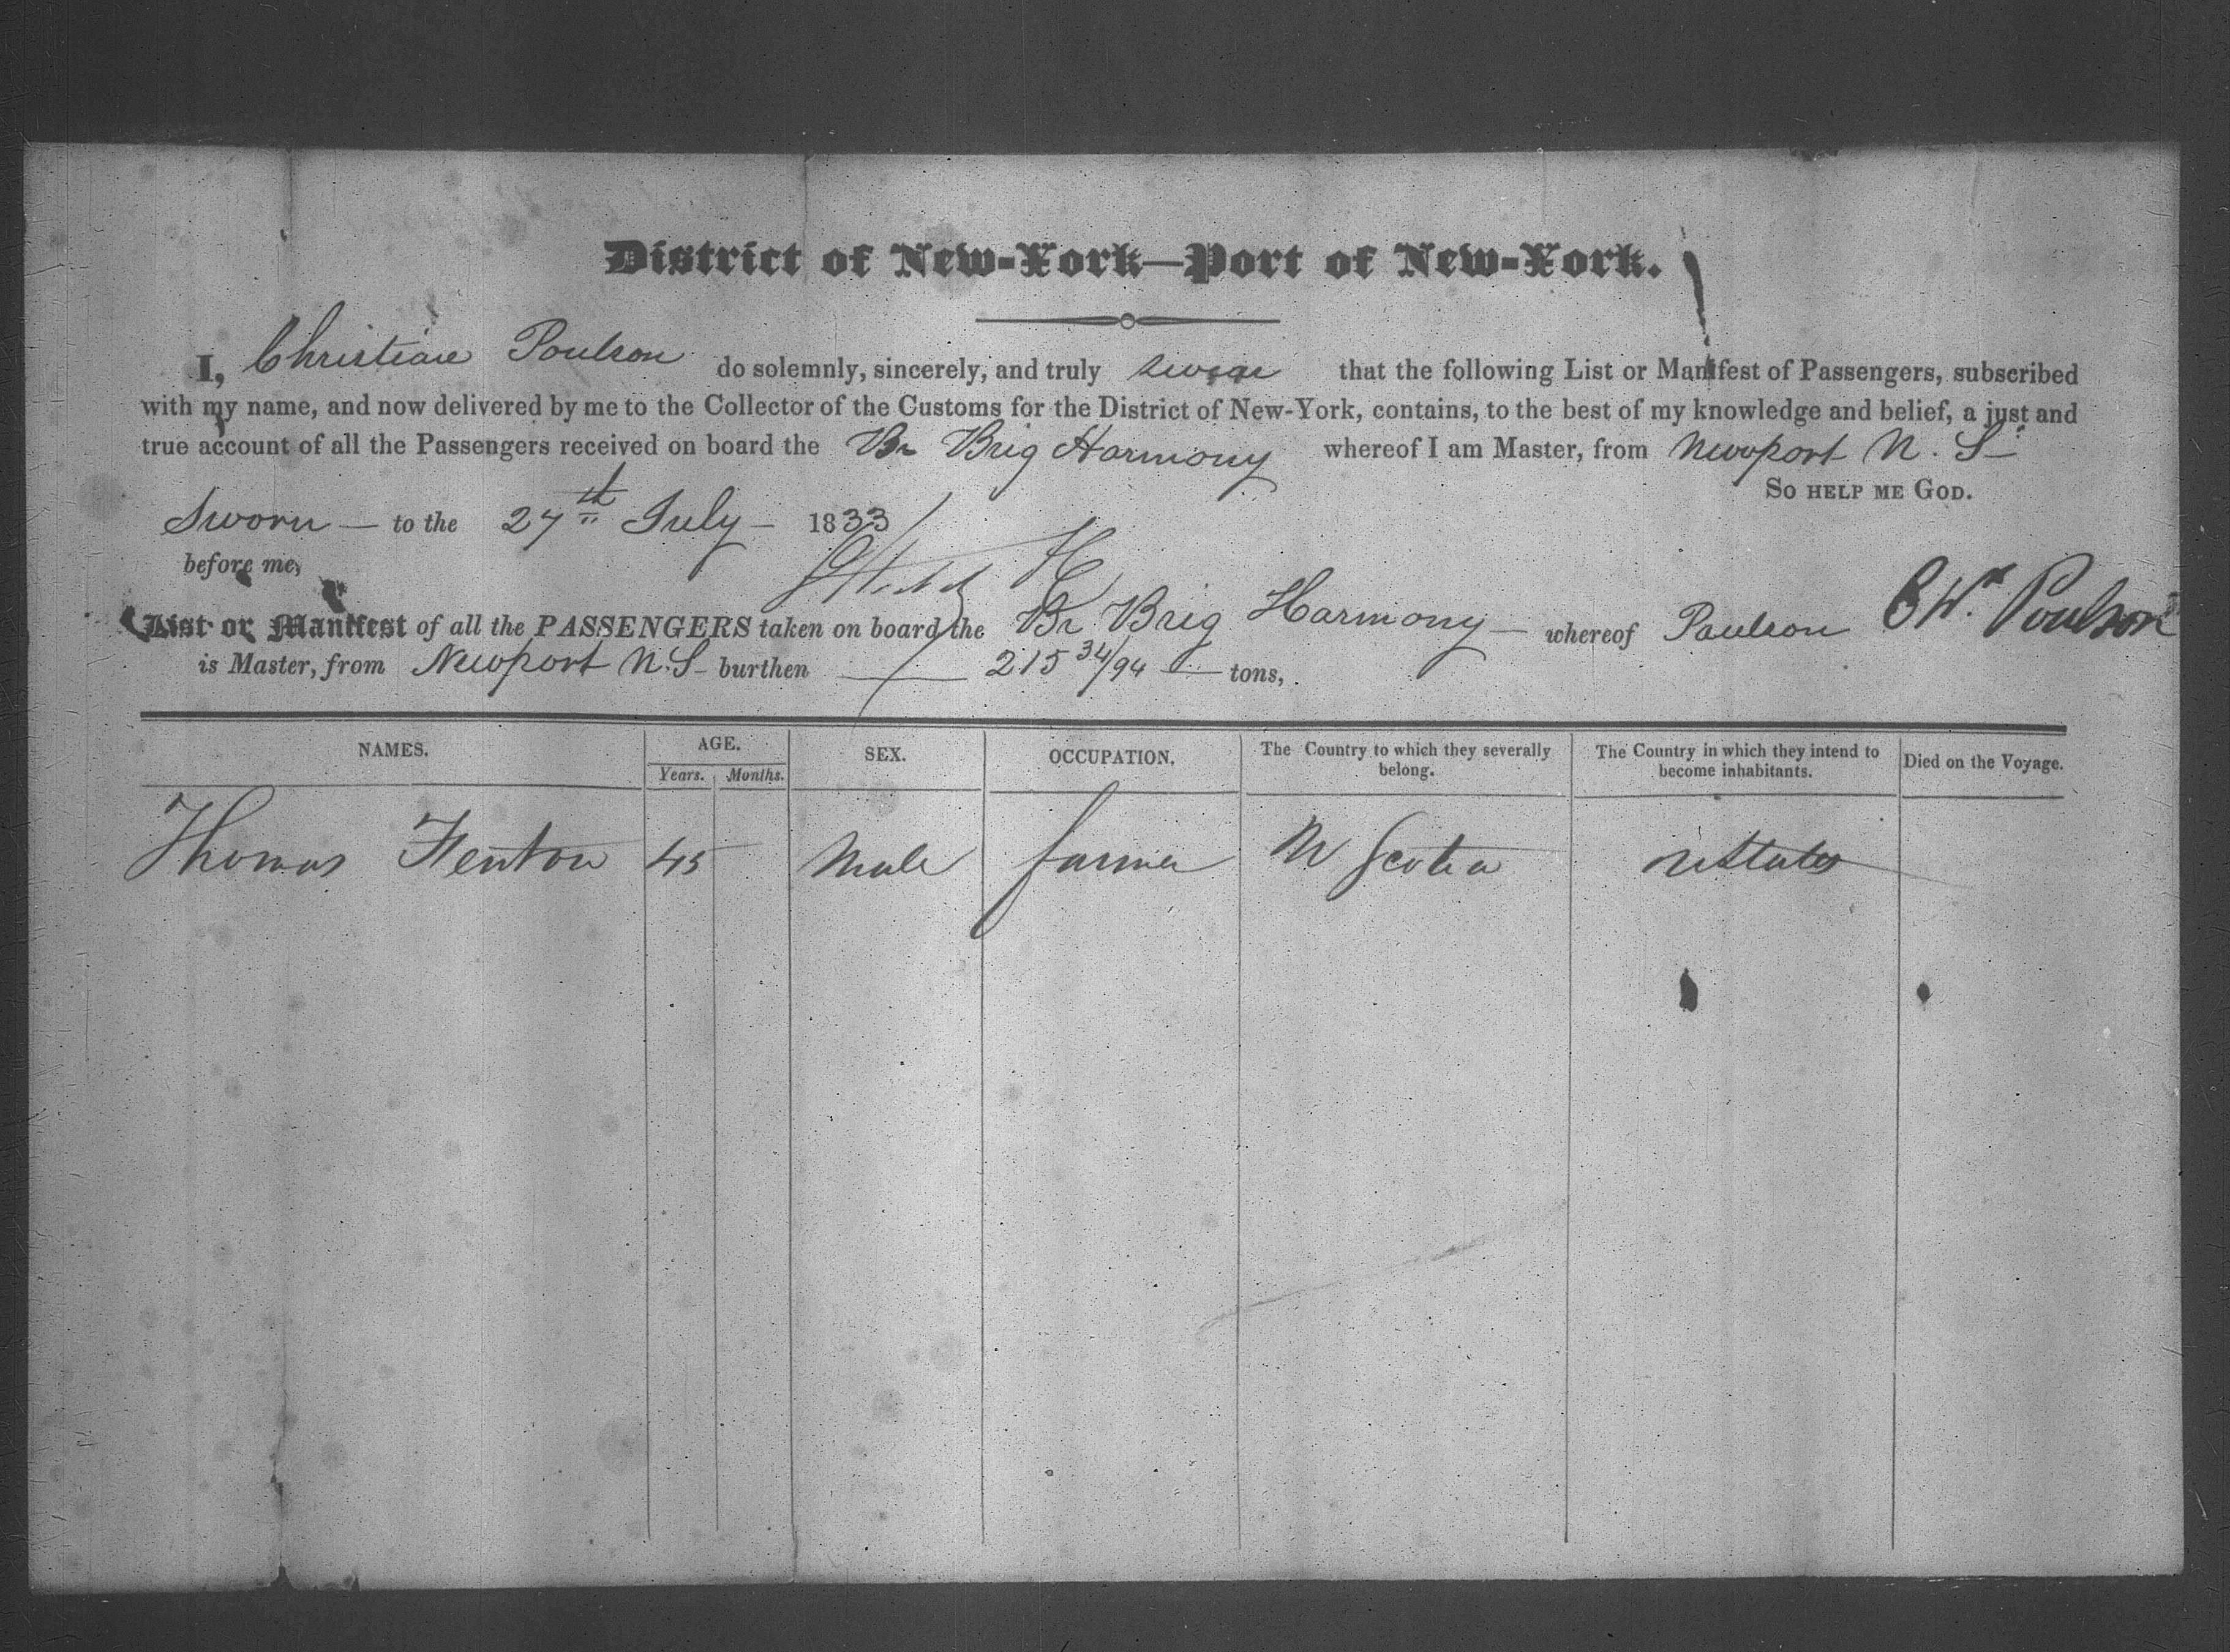 District of New-York—Port of New-York.
I, Christian Poulson do solemnly, sincerely, and truly swear that the following List or Manifest of Passengers, subscribed
with my name, and now delivered by me to the Collector of the Customs for the District of New-York, contains, to the best of my knowledge and belief, a just and
true account of all the Passengers received on board the Br Brig Harmony whereof I am Master, from Newport N. S.
So help me God.
Sworn — to the 27th July — 1833
before me,
C Wm Poulson
List or Manifest of all the PASSENGERS taken on board the Br Brig Harmony — whereof Poulson
is Master, from Newport N.S — burthen — 215 34/94 — tons,
NAMES. AGE. SEX. OCCUPATION. The Country to which they severally belong. The Country in which they intend to become inhabitants. Died on the Voyage.
Years. Months.
Thomas Fenton 45 Male farmer N Scotia UStates